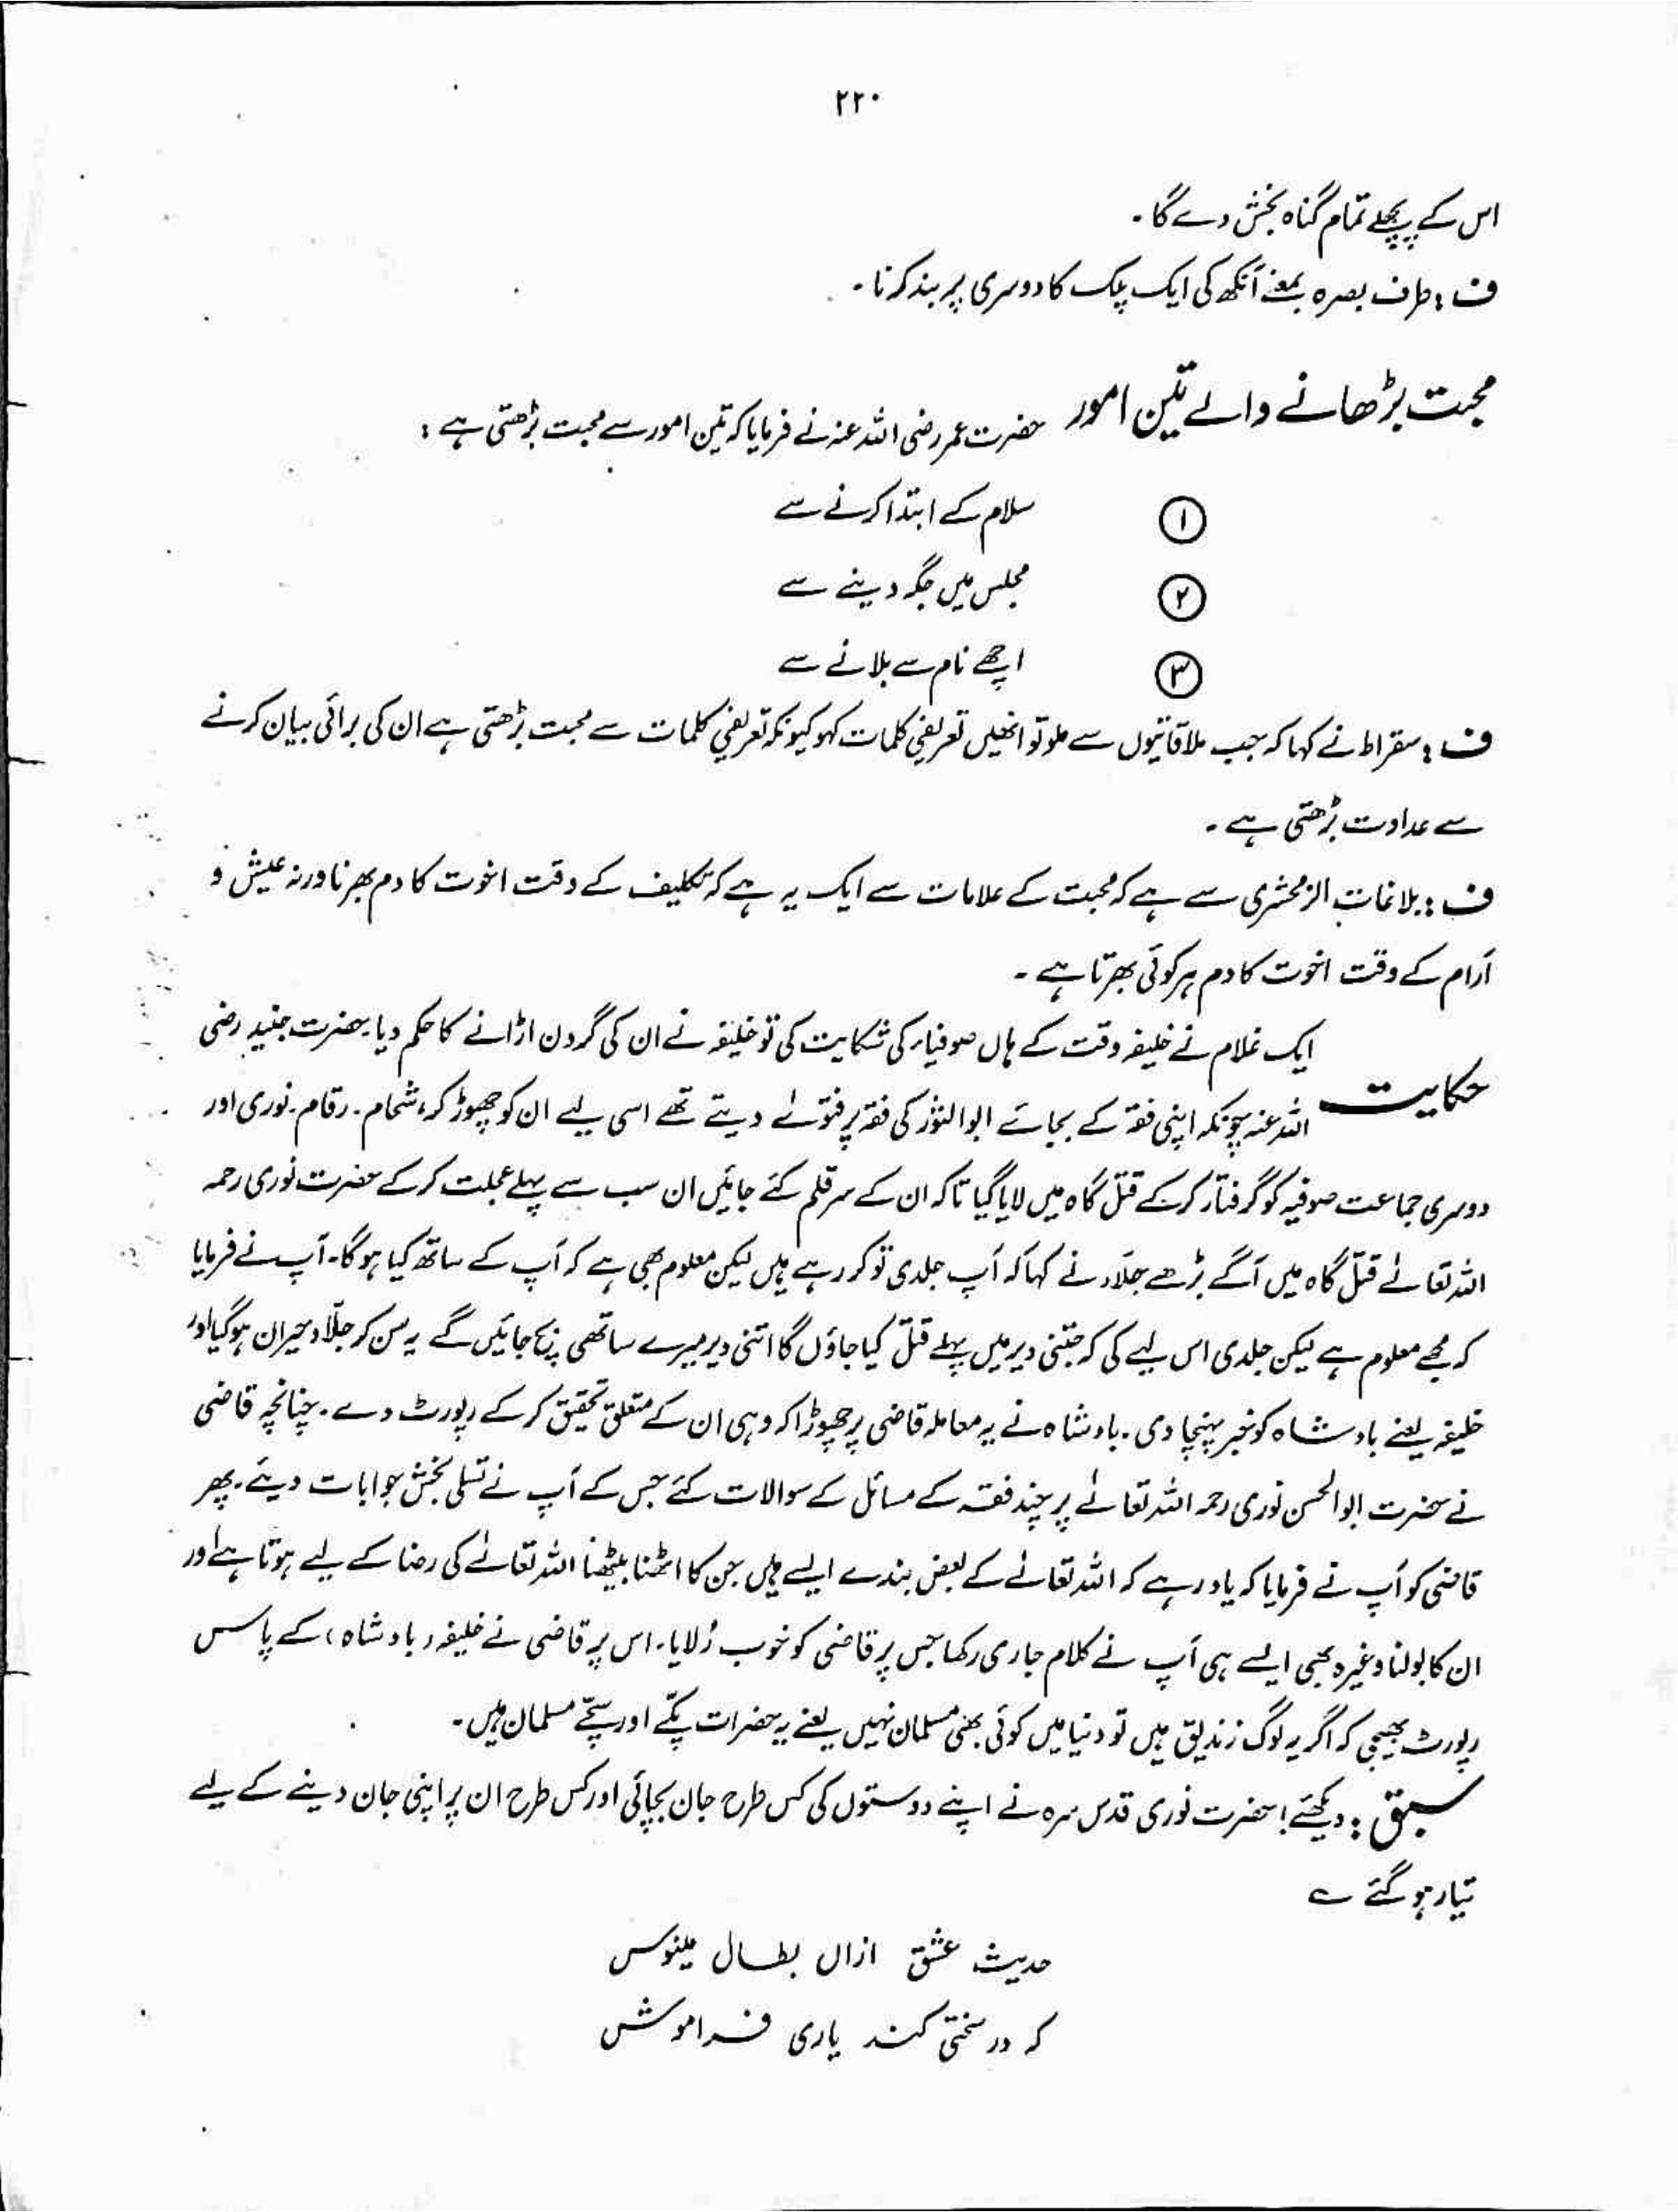 ۲۲۰
اس کے پچھلے تمام گناہ بخش دے گا۔
ف : طرف بصرہ بمعنے آنکھ کی ایک پلک کا دوسری پر بند کرنا۔
محبت بڑھانے والے تین امور حضرت عمر رضی اللہ عنہ نے فرمایا کہ تین امور سے محبت بڑھتی ہے :
① سلام کے ابتدا کرنے سے
② مجلس میں جگہ دینے سے
③ اچھے نام سے بلانے سے
ف : سقراط نے کہا کہ جب ملاقاتیوں سے ملو تو انھیں تعریفی کلمات کہو کیونکہ تعریفی کلمات سے محبت بڑھتی ہے ان کی برائی بیان کرنے
سے عداوت بڑھتی ہے۔
ف : بلاغات الزمخشری سے ہے کہ محبت کے علامات سے ایک یہ ہے کہ تکلیف کے وقت اخوت کا دم بھرنا ورنہ عیش و
آرام کے وقت اخوت کا دم ہر کوئی بھرتا ہے۔
حکایت ایک غلام نے خلیفہ وقت کے ہاں صوفیاء کی شکایت کی تو خلیفہ نے ان کی گردن اڑانے کا حکم دیا۔ حضرت جنید رضی
اللہ عنہ چونکہ اپنی فقہ کے بجائے ابو الثور کی فقہ پر فتوٰے دیتے تھے اسی لیے ان کو چھوڑ کر، شحام۔ رقام۔ نوری اور
دوسری جماعت صوفیہ کو گرفتار کر کے قتل گاہ میں لایا گیا تاکہ ان کے سر قلم کئے جائیں ان سب سے پہلے عجلت کر کے حضرت نوری رحمہ
اللہ تعالٰے قتل گاہ میں آگے بڑھے جلاد نے کہا کہ آپ جلدی تو کر رہے ہیں لیکن معلوم بھی ہے کہ آپ کے ساتھ کیا ہوگا۔ آپ نے فرمایا
کہ مجھے معلوم ہے لیکن جلدی اس لیے کی کہ جتنی دیر میں پہلے قتل کیا جاؤں گا اتنی دیر میرے ساتھی بچ جائیں گے یہ سن کر جلاد حیران ہو گیا اور
خلیفہ یعنے بادشاہ کو خبر پہنچا دی۔ بادشاہ نے یہ معاملہ قاضی پر چھوڑا کہ وہی ان کے متعلق تحقیق کر کے رپورٹ دے۔ چنانچہ قاضی
نے حضرت ابو الحسن نوری رحمہ اللہ تعالٰے پر چند فقہ کے مسائل کے سوالات کئے جس کے آپ نے تسلی بخش جوابات دیئے۔ پھر
قاضی کو آپ نے فرمایا کہ یاد رہے کہ اللہ تعالٰے کے بعض بندے ایسے ہیں جن کا اٹھنا بیٹھنا اللہ تعالٰے کی رضا کے لیے ہوتا ہے اور
ان کا بولنا وغیرہ بھی ایسے ہی آپ نے کلام جاری رکھا جس پر قاضی کو خوب رُلایا۔ اس پر قاضی نے خلیفہ (بادشاہ) کے پاس
رپورٹ بھیجی کہ اگر یہ لوگ زندیق ہیں تو دنیا میں کوئی بھی مسلمان نہیں یعنے یہ حضرات پکّے اور سچّے مسلمان ہیں۔
سبق : دیکھئے! حضرت نوری قدس سرہ نے اپنے دوستوں کی کس طرح جان بچائی اور کس طرح ان پر اپنی جان دینے کے لیے
تیار ہو گئے ؎
حدیث عشق ازاں بطال مینوس
کہ در سختی کند یاری فراموش